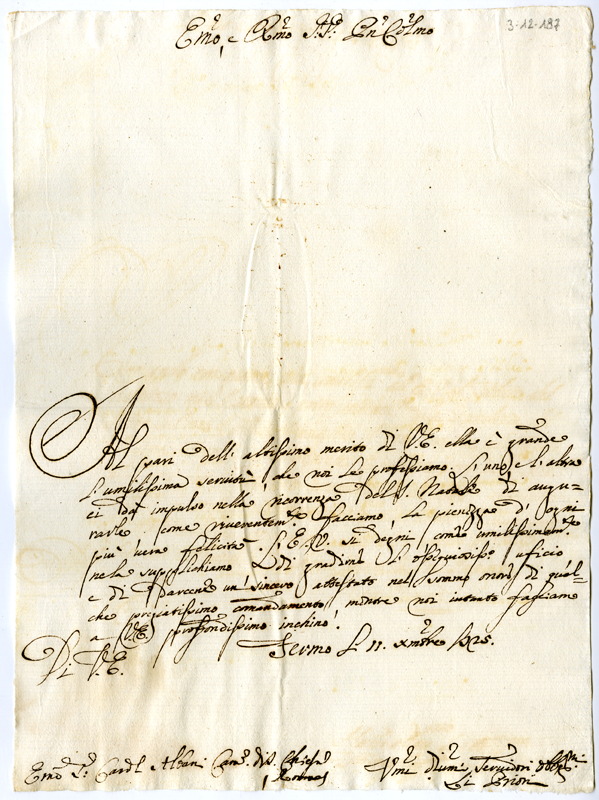 3-12-187
Em̃o, e Rm̃o Sig.r P.rõn Col.mo
Al pari dell'altissimo merito di V.E. ella è grande
l'umilissima servitù che noi le professiamo. L'uno e l'altra
ci dà impulso nella ricorrenza del S. Natale di augu-
rarle, come riverentem.te facciamo, la pienezza d'ogni
più vera felicità. L'E.V. si degni come umilissimam.te
ne la supplichiamo di gradire l'ossequiosiss.o uficio
e di darcene un sincero attestato nel sommo onore di qual-
che pregiatissimo comandamento, mentre noi intanto facciamo
a V.E. profondissimo inchino.
Di V.E. Fermo li 11. xmbre 1725.
Em̃o Sig.r Card.l Albani Cam.o di S. Chiesa
Umi Dimi Servidori obblmi
Li Priori